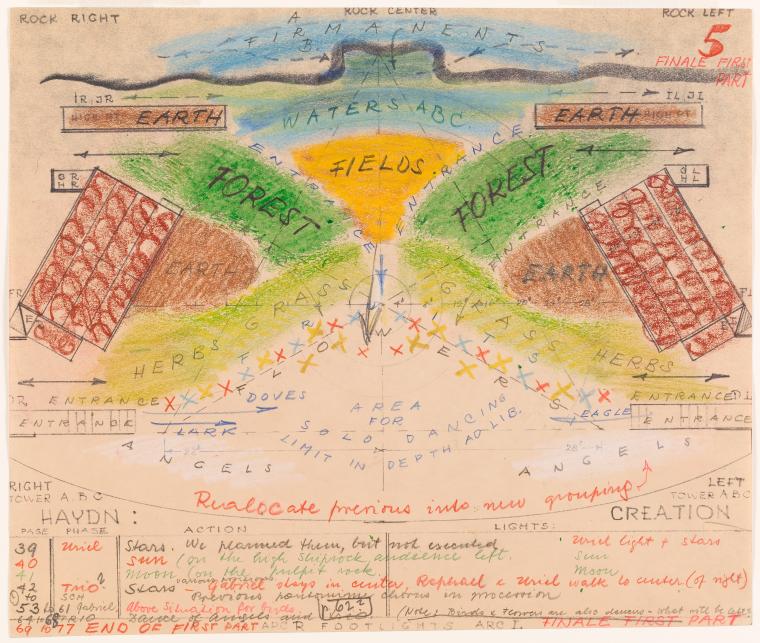 ROCK RIGHT
ROCK CENTER
ROCK LEFT
A
FIRMAMENTS
B
5
FINALE FIRST
PART
IR, JR
IL, JI
EARTH
WATERS ABC
EARTH
ENTRANCE
ENTRANCE
FIELDS
FOREST
FOREST
GR
HR
GL
HL
ENTRANCE
EARTH
EARTH
GRASS
GRASS
HERBS
HERBS
FLOWERS
FRUITS
ENTRANCE
ENTRANCE
DOVES
LARK
EAGLE
ENTRANCE
ENTRANCE
AREA
FOR
SOLO DANCING
LIMIT IN DEPTH AD LIB.
ANGELS
ANGELS
RIGHT
TOWER A.B.C
LEFT
TOWER ABC
Realocate previous into new grouping
HAYDN:
CREATION
PAGE PHASE ACTION LIGHTS:
39 Uriel Stars. We planned them, but not executed Uriel light + stars
40 Sun (on the high Shiprock audience left. Sun
41 Moon (on the pulpit rock moon
42 Trio? Stars - Gabriel stays in center, Raphael & Uriel walk to center. (of right)
to Previous pantomime chorus in procession
53 61 Gabriel, Above Situation for birds.
Dance of Angels and 62 (Note: Birds & Flowers are also dancers - what will be
69 77 END OF FIRST PART FOOTLIGHTS ARC I. FINALE FIRST PART